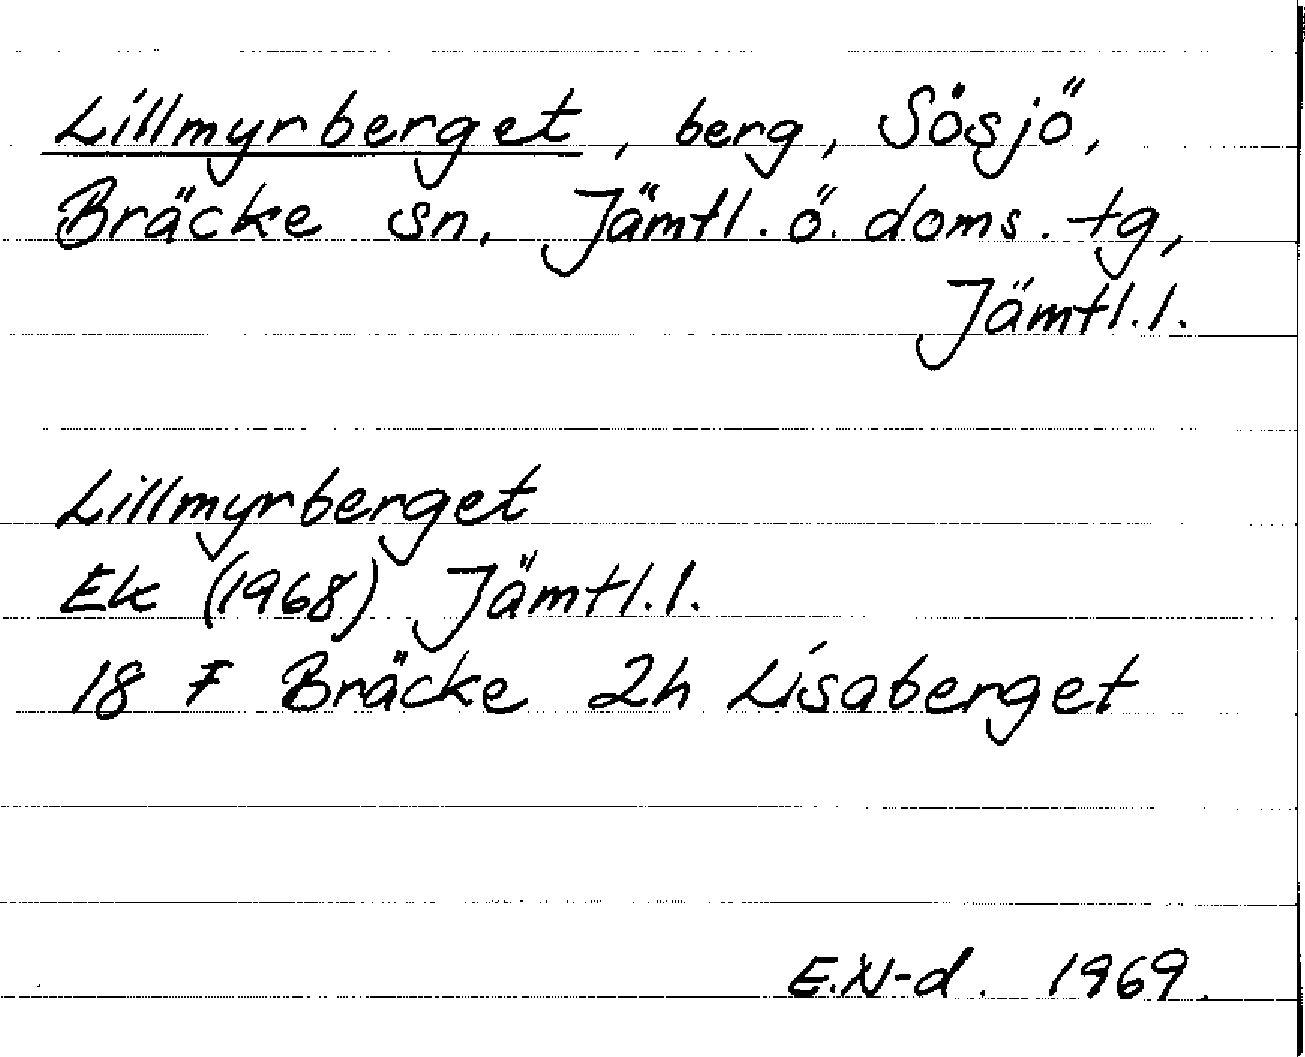 Lillmyrberget, berg, Sösjö,
Bräcke sn, Jämtl. ö. doms. tg,
Jämtl. l.
Lillmyrberget
Ek (1968) Jämtl. l.
18 F Bräcke 2h Lisaberget
E.N-d. 1969.